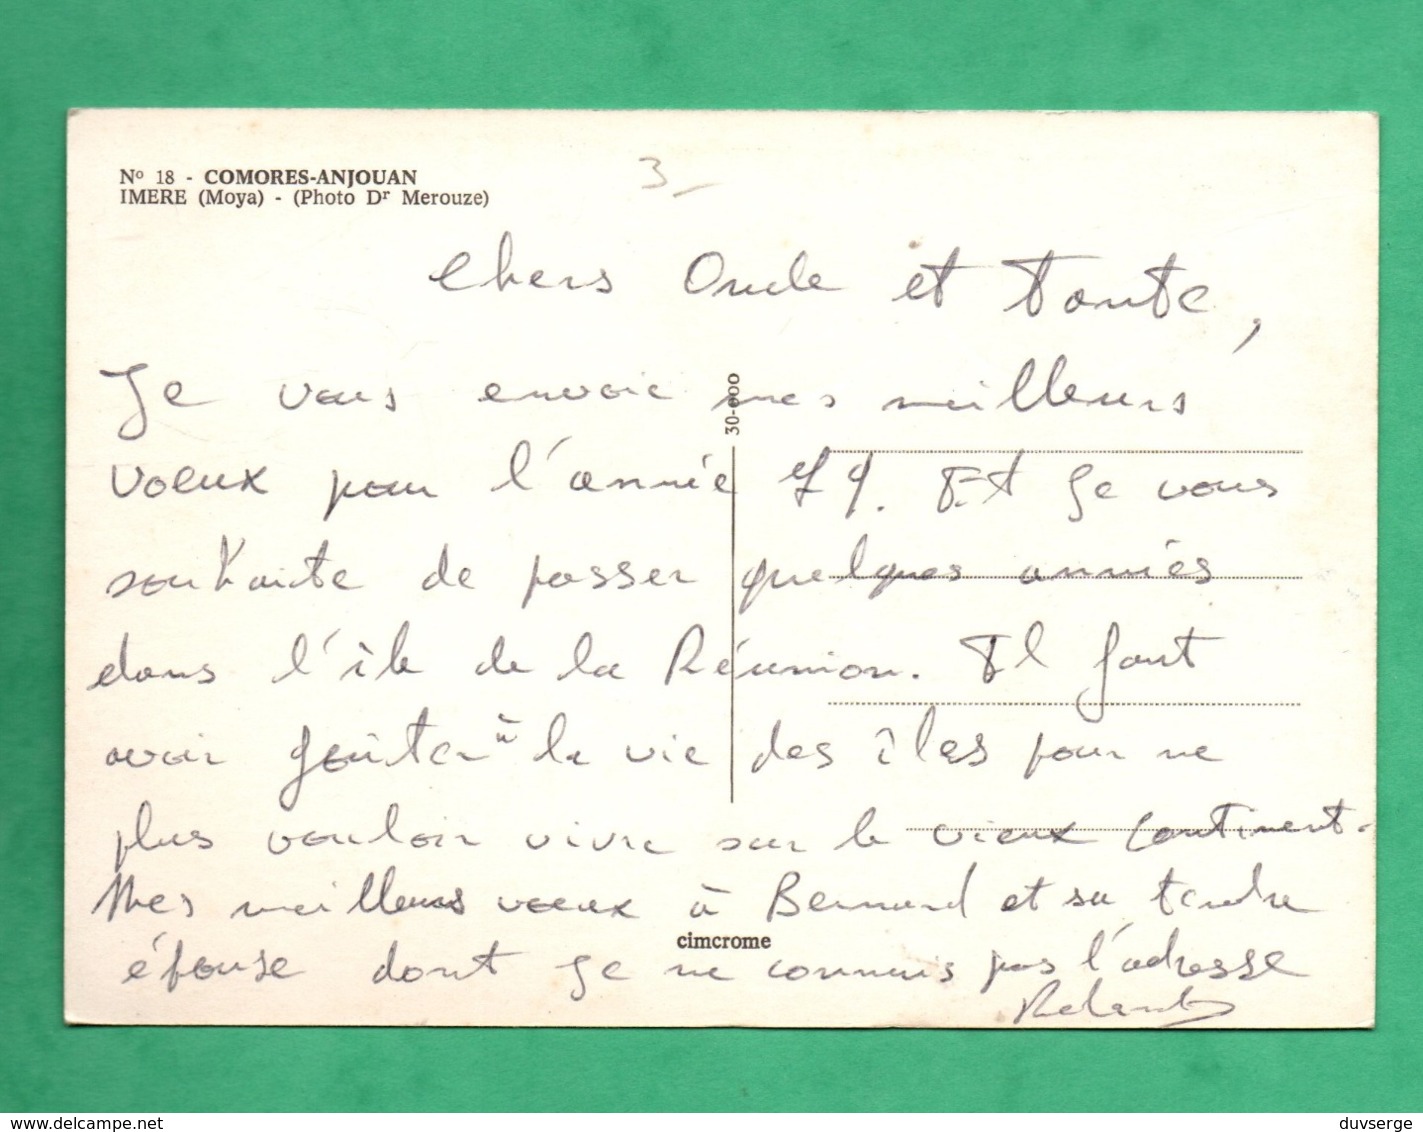 Nº 18 - COMORES-ANJOUAN
IMERE (Moya) - (Photo Dr Merouze)
3 -
Chers Oncle et Tante,
Je vous envoie mes meilleurs
30-000
voeux pour l'année 79. Et Je vous
souhaite de passer quelques années
dans l'île de la Réunion. Il faut
avoir goûter à la vie des îles pour ne
plus vouloir vivre sur le vieux continent.
Mes meilleurs voeux à Bernard et sa tendre
cimcrome
épouse dont Je ne connais pas l'adresse
Roland
www.delcampe.net
duvserge